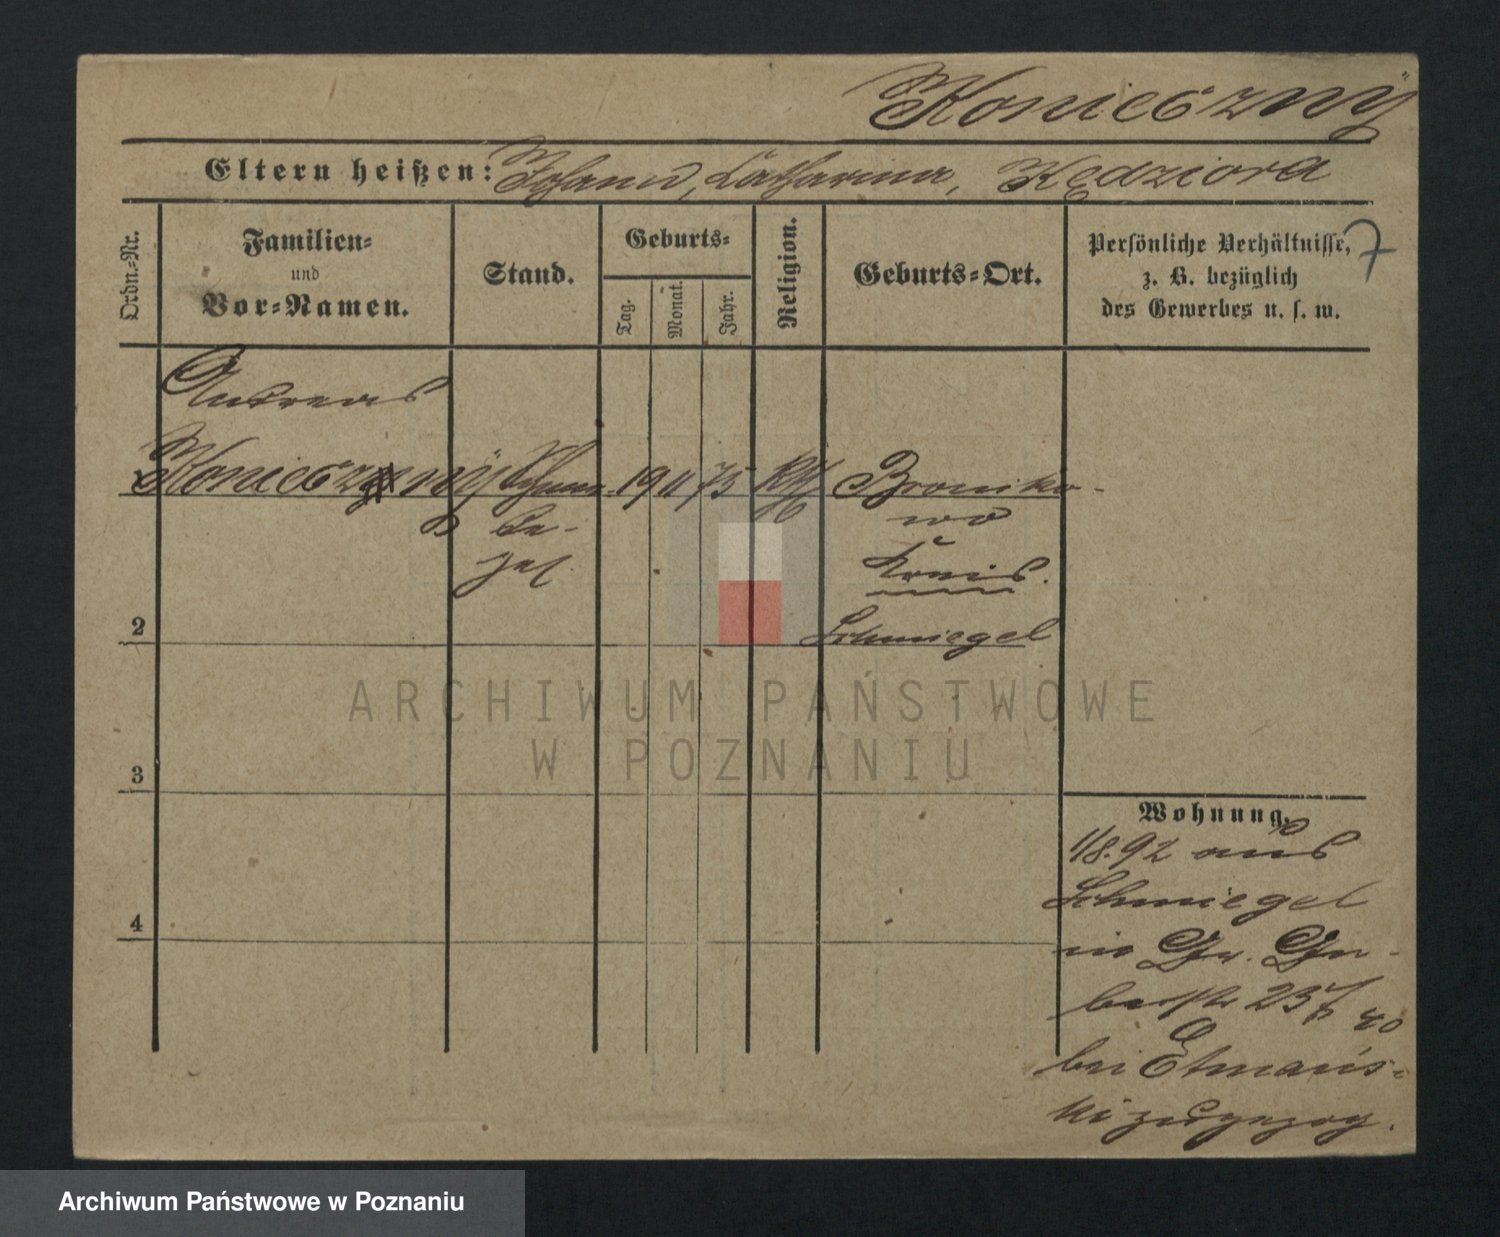 Konieczny
Eltern heißen: Johann, Catharina, Kędziora
Ordn.-Nr.
Familien-
und
Vor-Namen.
Stand.
Geburts-
Tag.
Monat.
Jahr.
Religion.
Geburts-Ort.
Persönliche Verhältnisse, 7
z. B. bezüglich
des Gewerbes u. s. w.
Andreas
Konieczny 19 11 75 Kth Broniko-
wo
Kreis
Schmiegel
2
3
4
Wohnung.
1/8. 92 aus
Schmiegel
in Gr. Ger-
berstr 23
bei Etmańs-
ki zugezog.
ARCHIWUM PAŃSTWOWE
W POZNANIU
Archiwum Państwowe w Poznaniu